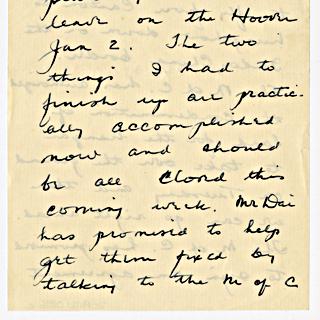 leave on the Hoover
Jan 2. The two
things I had to
finish up are practic-
ally accomplished
now and should
be all closed this
coming week. Mr Dai
has promised to help
get them fixed by
talking to the M of C